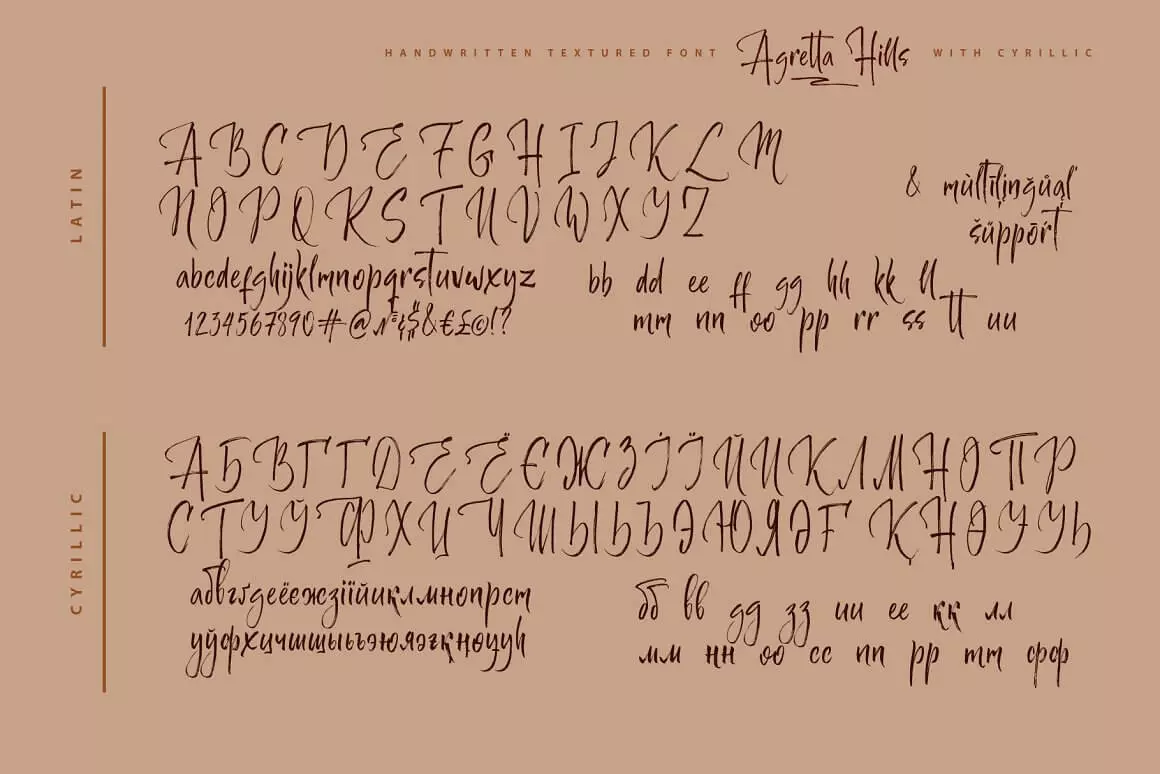 HANDWRITTEN TEXTURED FONT Agretta Hills WITH CYRILLIC
LATIN
A B C D E F G H I J K L M
N O P Q R S T U V W X Y Z
abcdefghijklmnopqrstuvwxyz
1234567890#@№$&€£©!?
& mùltīļiņğůąľ
šűppōŕt
bb dd ee ff gg hh kk ll
mm nn oo pp rr ss tt uu
CYRILLIC
А Б В Г Ґ Д Е Ё Є Ж З І Ї Й И К Л М Н О П Р
С Т У Ў Ф Х Ц Ч Ш Ы Ь Ъ Э Ю Я Ә Ғ Қ Ң Ө Ұ Ү Һ
абвгґдеёєжзіїйиклмнопрст
уўфхцчшщыьъэюяәғқңөұүһ
бб вв дд зз ии ее кк лл
мм нн оо сс пп рр тт фф